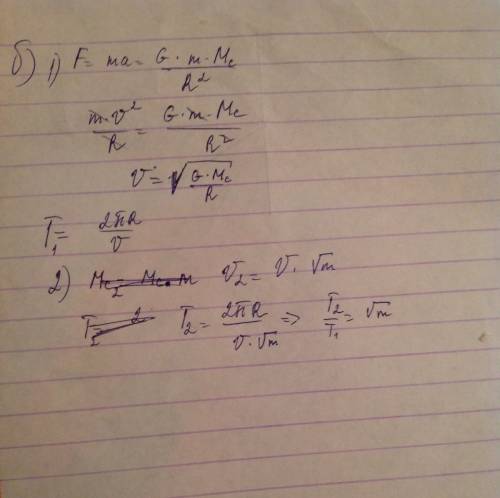 б) 1) F = ma = G · m · Mc / R²
m · v² / R = G · m · Mc / R²
v = √(G · Mc / R)
T₁ = 2πR / v
2) v₂ = v · √m
T₂ = 2πR / v · √m => T₂ / T₁ = √m